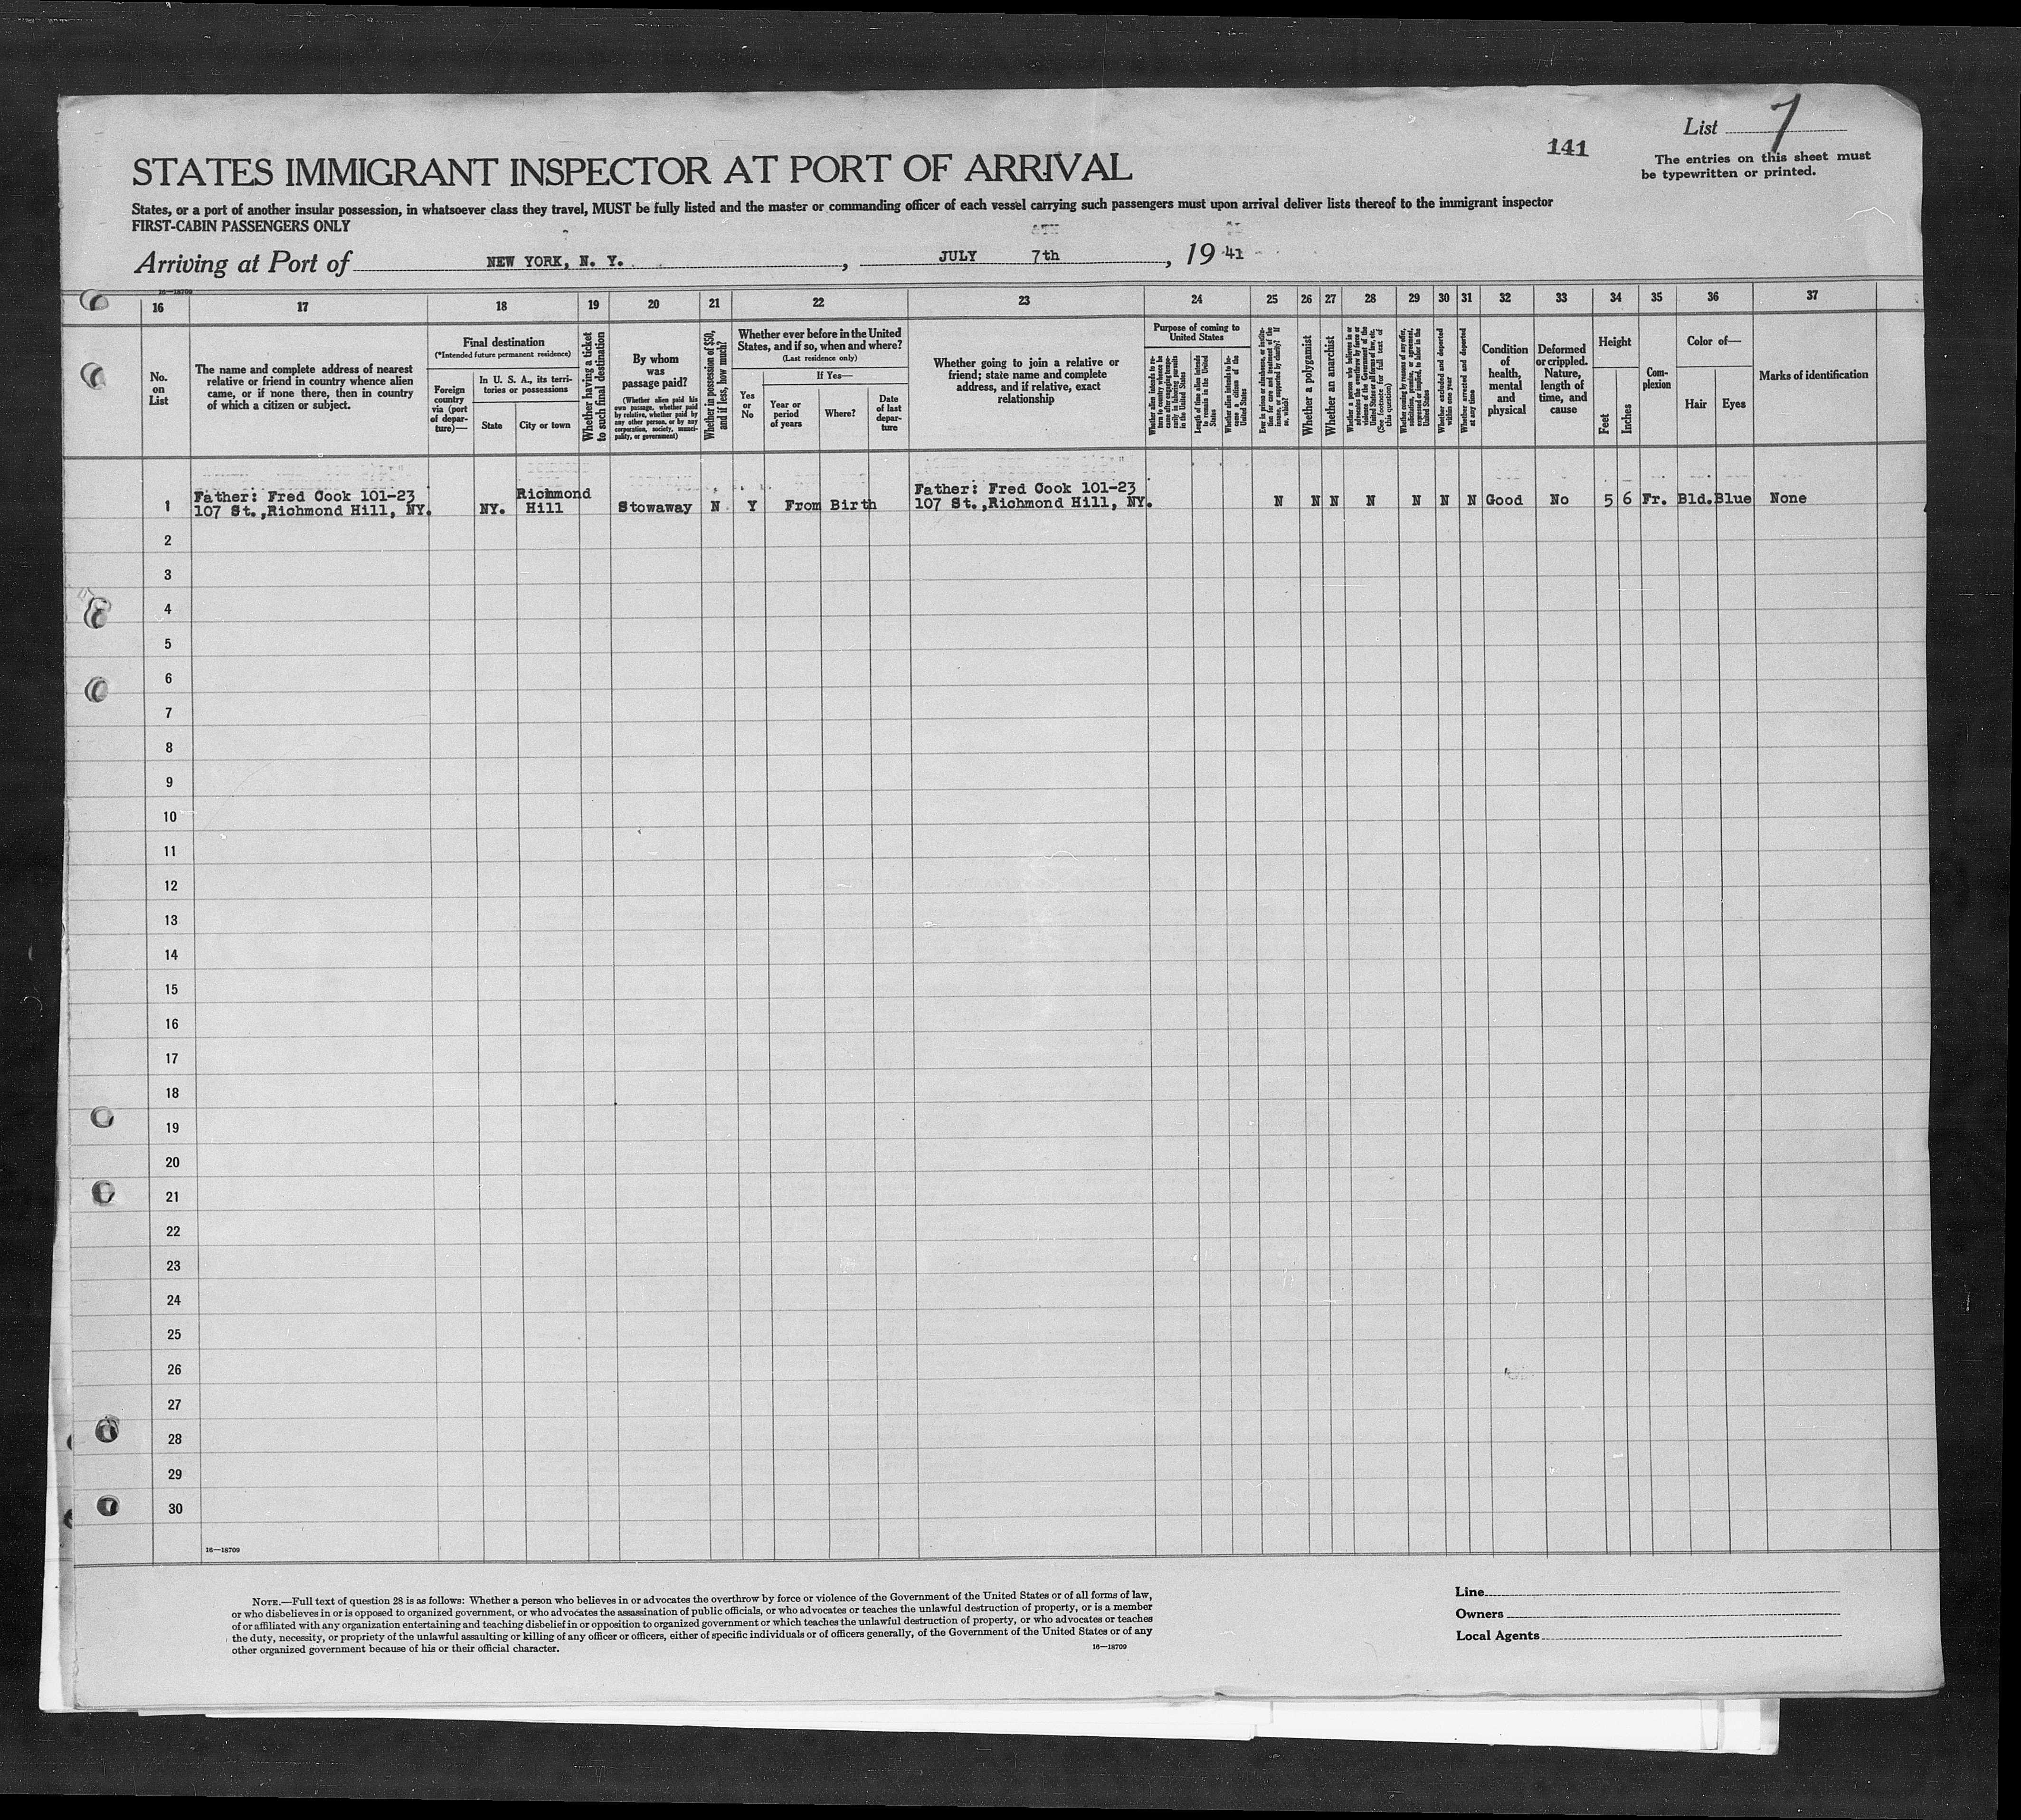 List 7
141
The entries on this sheet must
be typewritten or printed.
STATES IMMIGRANT INSPECTOR AT PORT OF ARRIVAL
States, or a port of another insular possession, in whatsoever class they travel, MUST be fully listed and the master or commanding officer of each vessel carrying such passengers must upon arrival deliver lists thereof to the immigrant inspector
FIRST-CABIN PASSENGERS ONLY
Arriving at Port of NEW YORK, N. Y. , JULY 7th , 19 41
16—18709
16 17 18 19 20 21 22 23 24 25 26 27 28 29 30 31 32 33 34 35 36 37
No.
on
List
The name and complete address of nearest
relative or friend in country whence alien
came, or if none there, then in country
of which a citizen or subject.
Final destination
(*Intended future permanent residence)
Foreign
country
via (port
of depar-
ture)—
In U. S. A., its terri-
tories or possessions
State
City or town
Whether having a ticket
to such final destination
By whom
was
passage paid?
(Whether alien paid his
own passage, whether paid
by relative, whether paid by
any other person, or by any
corporation, society, munici-
pality, or government)
Whether in possession of $50,
and if less, how much?
Whether ever before in the United
States, and if so, when and where?
(Last residence only)
Yes
or
No
If Yes—
Year or
period
of years
Where?
Date
of last
depar-
ture
Whether going to join a relative or
friend; state name and complete
address, and if relative, exact
relationship
Purpose of coming to
United States
Whether alien intends to re-
turn to country whence he
came after engaging tempo-
rarily in laboring pursuits
in the United States
Length of time alien intends
to remain in the United
States
Whether alien intends to be-
come a citizen of the
United States
Ever in prison or almshouse, or institu-
tion for care and treatment of the
insane, or supported by charity? If
so, which?
Whether a polygamist
Whether an anarchist
Whether a person who believes in or
advocates the overthrow by force or
violence of the Government of the
United States or all forms of law, etc.
(See footnote for full text of
this question)
Whether coming by reason of any offer,
solicitation, promise, or agreement,
expressed or implied, to labor in the
United States
Whether excluded and deported
within one year
Whether arrested and deported
at any time
Condition
of
health,
mental
and
physical
Deformed
or crippled.
Nature,
length of
time, and
cause
Height
Feet
Inches
Com-
plexion
Color of—
Hair
Eyes
Marks of identification
1 Father: Fred Cook 101-23
107 St.,Richmond Hill, NY. NY. Richmond
Hill Stowaway N Y From Birth Father: Fred Cook 101-23
107 St.,Richmond Hill, NY. N N N N N N N Good No 5 6 Fr. Bld. Blue None
2
3
4
5
6
7
8
9
10
11
12
13
14
15
16
17
18
19
20
21
22
23
24
25
26
27
28
29
30
16—18709
NOTE.—Full text of question 28 is as follows: Whether a person who believes in or advocates the overthrow by force or violence of the Government of the United States or of all forms of law,
or who disbelieves in or is opposed to organized government, or who advocates the assassination of public officials, or who advocates or teaches the unlawful destruction of property, or is a member
of or affiliated with any organization entertaining and teaching disbelief in or opposition to organized government or which teaches the unlawful destruction of property, or who advocates or teaches
the duty, necessity, or propriety of the unlawful assaulting or killing of any officer or officers, either of specific individuals or of officers generally, of the Government of the United States or of any
other organized government because of his or their official character.
16—18709
Line
Owners
Local Agents